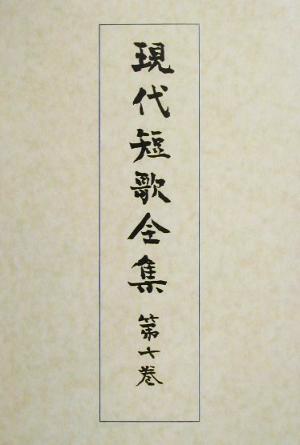 現代短歌全集 第十巻